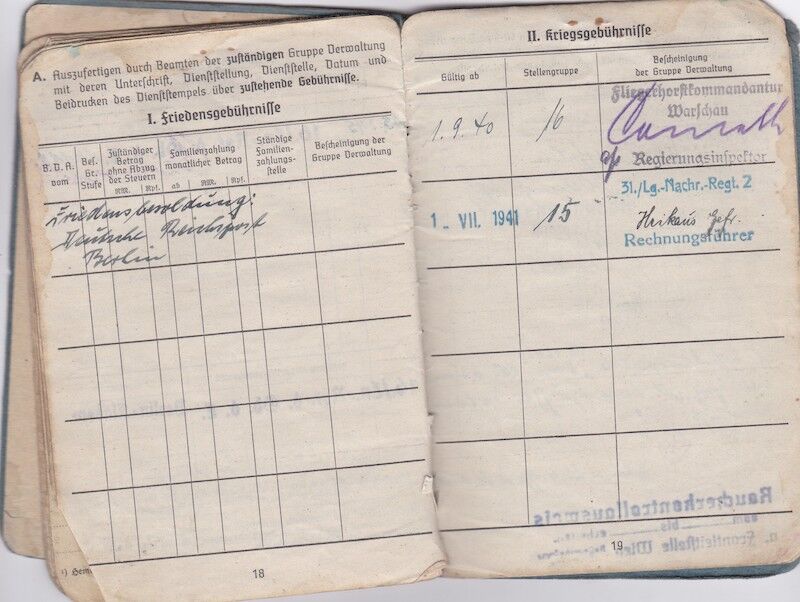 A. Auszufertigen durch Beamten der zuständigen Gruppe Verwaltung
mit deren Unterschrift, Dienststellung, Dienststelle, Datum und
Beidrucken des Dienststempels über zustehende Gebührnisse.
I. Friedensgebührnisse
B. D. A. vom
Bes. Gr. Stufe
Zuständiger Betrag ohne Abzug der Steuern
RM. Rpf.
Familienzahlung monatlicher Betrag
ab RM. Rpf.
Ständige Familien-zahlungs-stelle
Bescheinigung der Gruppe Verwaltung
Friedensbesoldung:
Deutsche Reichspost
Berlin
18
II. Kriegsgebührnisse
Gültig ab
Stellengruppe
Bescheinigung
der Gruppe Verwaltung
1.9.40 16
Fliegerhorstkommandantur
Warschau
Regierungsinspektor
1. VII. 1941 15
31./Lg.-Nachr.-Regt. 2
Gefr.
Rechnungsführer
Raucherkontrollausweis
vom bis
19